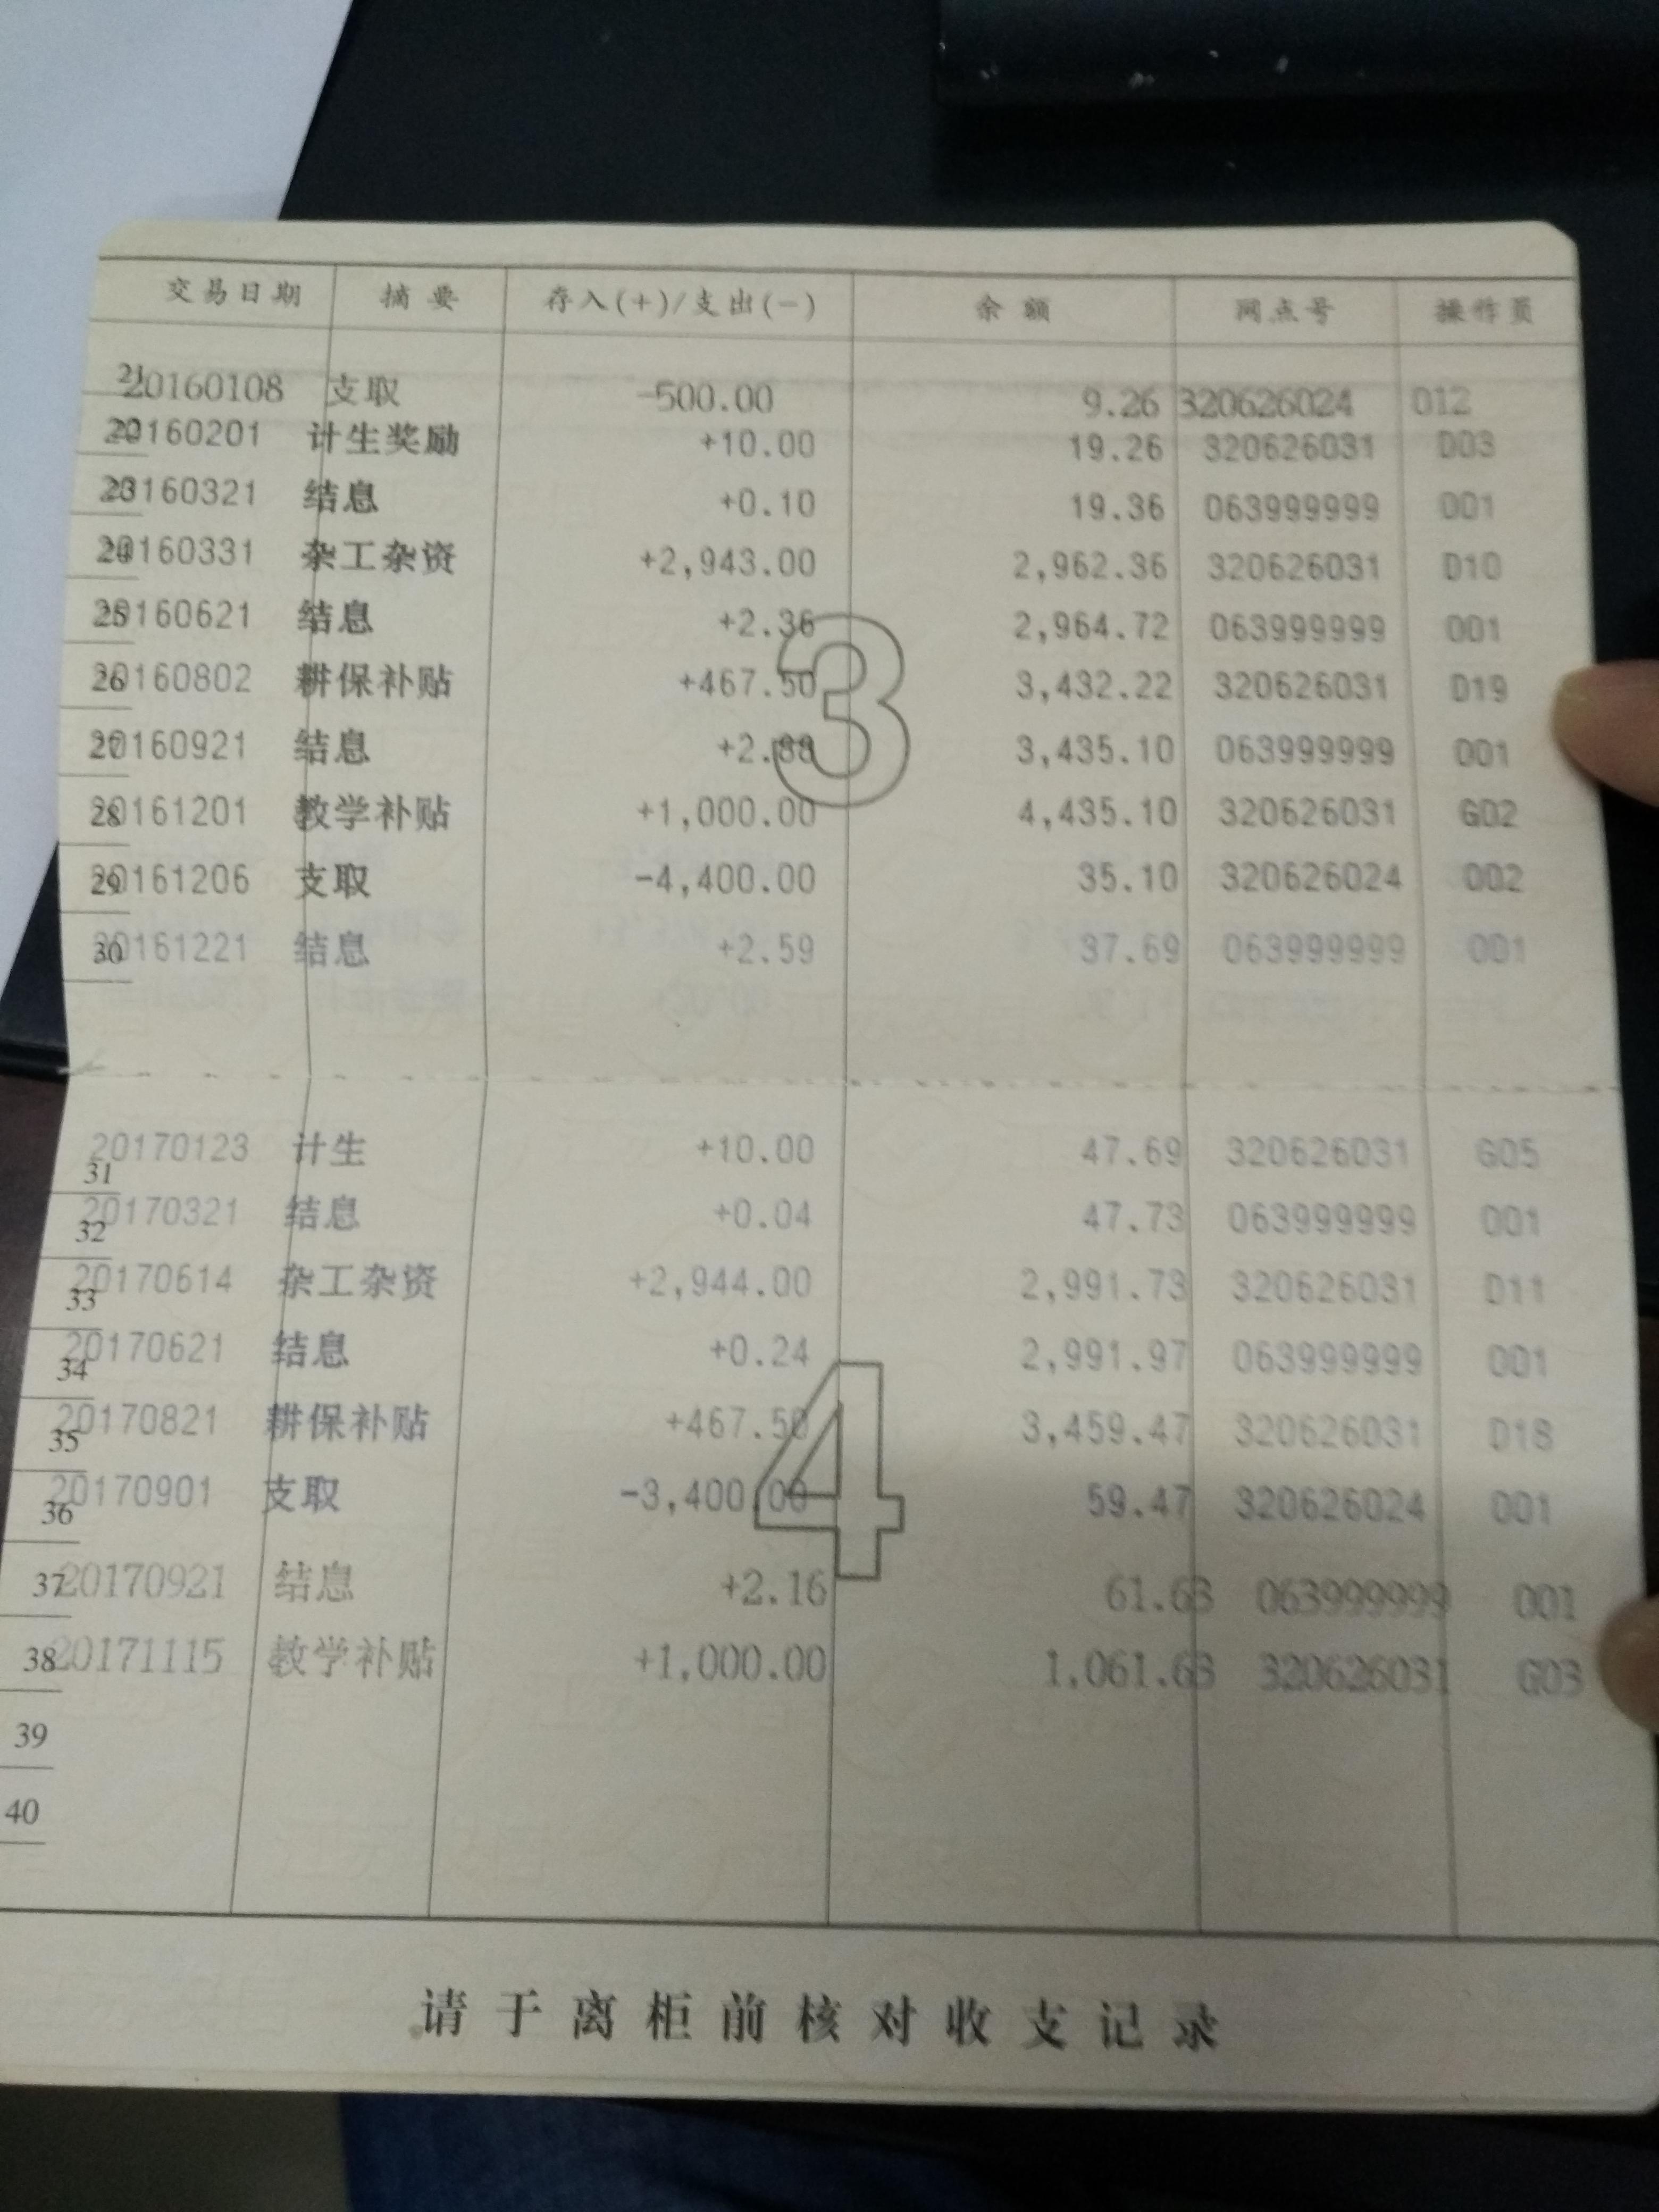 交易日期 摘要 存入(+)/支出(-) 余额 网点号 操作员
21 20160108 支取 -500.00 9.26 320626024 012
22 20160201 计生奖励 +10.00 19.26 320626031 D03
23 20160321 结息 +0.10 19.36 063999999 001
24 20160331 杂工杂资 +2,943.00 2,962.36 320626031 D10
25 20160621 结息 +2.36 2,964.72 063999999 001
26 20160802 耕保补贴 +467.50 3,432.22 320626031 D19
27 20160921 结息 +2.88 3,435.10 063999999 001
28 20161201 教学补贴 +1,000.00 4,435.10 320626031 G02
29 20161206 支取 -4,400.00 35.10 320626024 002
30 20161221 结息 +2.59 37.69 063999999 001
3
31 20170123 计生 +10.00 47.69 320626031 G05
32 20170321 结息 +0.04 47.73 063999999 001
33 20170614 杂工杂资 +2,944.00 2,991.73 320626031 D11
34 20170621 结息 +0.24 2,991.97 063999999 001
35 20170821 耕保补贴 +467.50 3,459.47 320626031 D18
36 20170901 支取 -3,400.00 59.47 320626024 001
37 20170921 结息 +2.16 61.63 063999999 001
38 20171115 教学补贴 +1,000.00 1,061.63 320626031 G03
39
40
4
请于离柜前核对收支记录